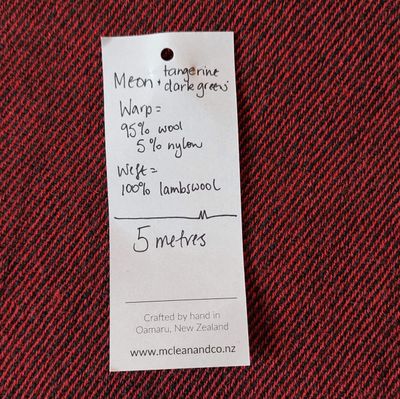 Meon + tangerine
dark green
Warp =
95% wool
5% nylon
Weft =
100% lambswool
5 metres
Crafted by hand in
Oamaru, New Zealand
www.mcleanandco.nz